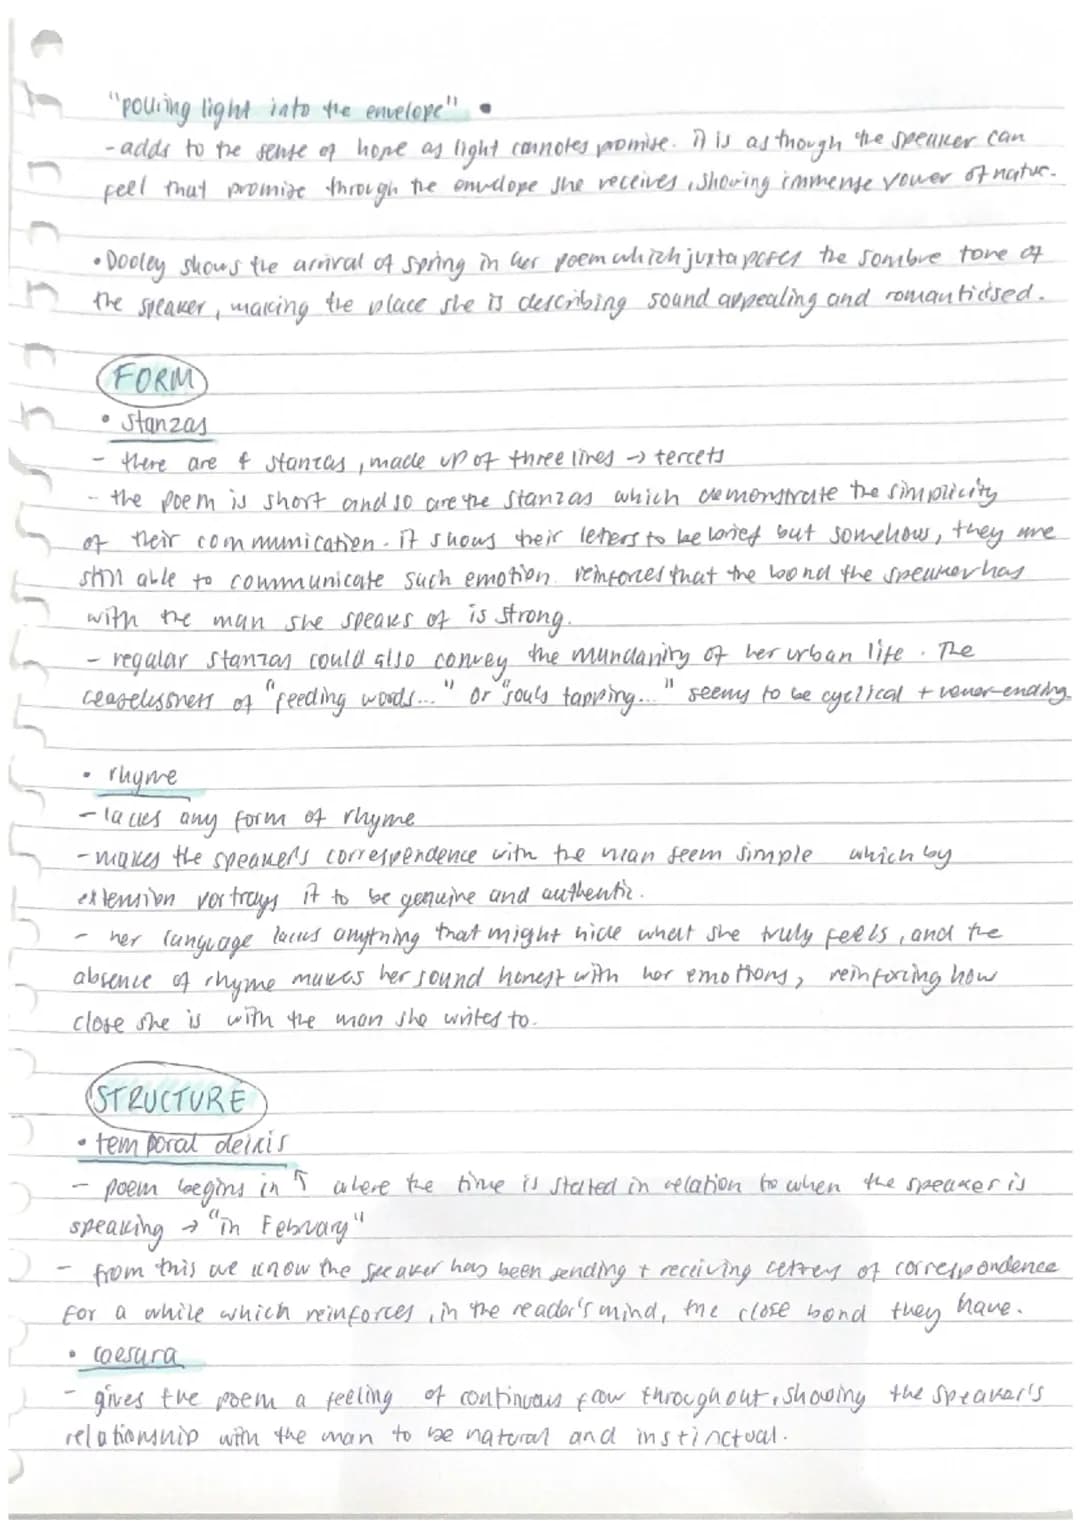 "pouring light into the envelope" •
- adds to the sense of hope as light connotes promise. it is as though the speaker can
feel that promise through the envelope she receives, showing immense power of natur.
• Dooley shows the arrival of spring in her poem which juxtaposes the sombre tone of
the speaker, making the place she is describing sound appealing and romanticised.
FORM
• stanzas
- there are stanzas, made up of three lines → tercets
- the poem is short and so are the stanzas which demonstrate the simplicity
of their communication. it shows their letters to be brief but somehow, they are
still able to communicate such emotion. reinforces that the bond the speaker has
with the man she speaks of is strong.
- regular stanzas could also convey the mundanity of her urban life. The
ceaselessness of "feeding words..." or "souls tapping..." seems to be cyclical + never-ending
• rhyme
- lacks any form of rhyme
- makes the speaker's correspondence with the man seem simple which by
extension portrays it to be genuine and authentic.
- her language lacks anything that might hide what she truly feels, and the
absence of rhyme makes her sound honest with her emotions, reinforcing how
close she is with the man she writes to.
STRUCTURE
• temporal deixis
- poem begins in ↑ where the time is stated in relation to when the speaker is
speaking → "in February"
- from this we know the speaker has been sending + receiving letters of correspondence
for a while which reinforces, in the reader's mind, the close bond they have.
• caesura
- gives the poem a feeling of continuous flow throughout, showing the speaker's
relationship with the man to be natural and instinctual.